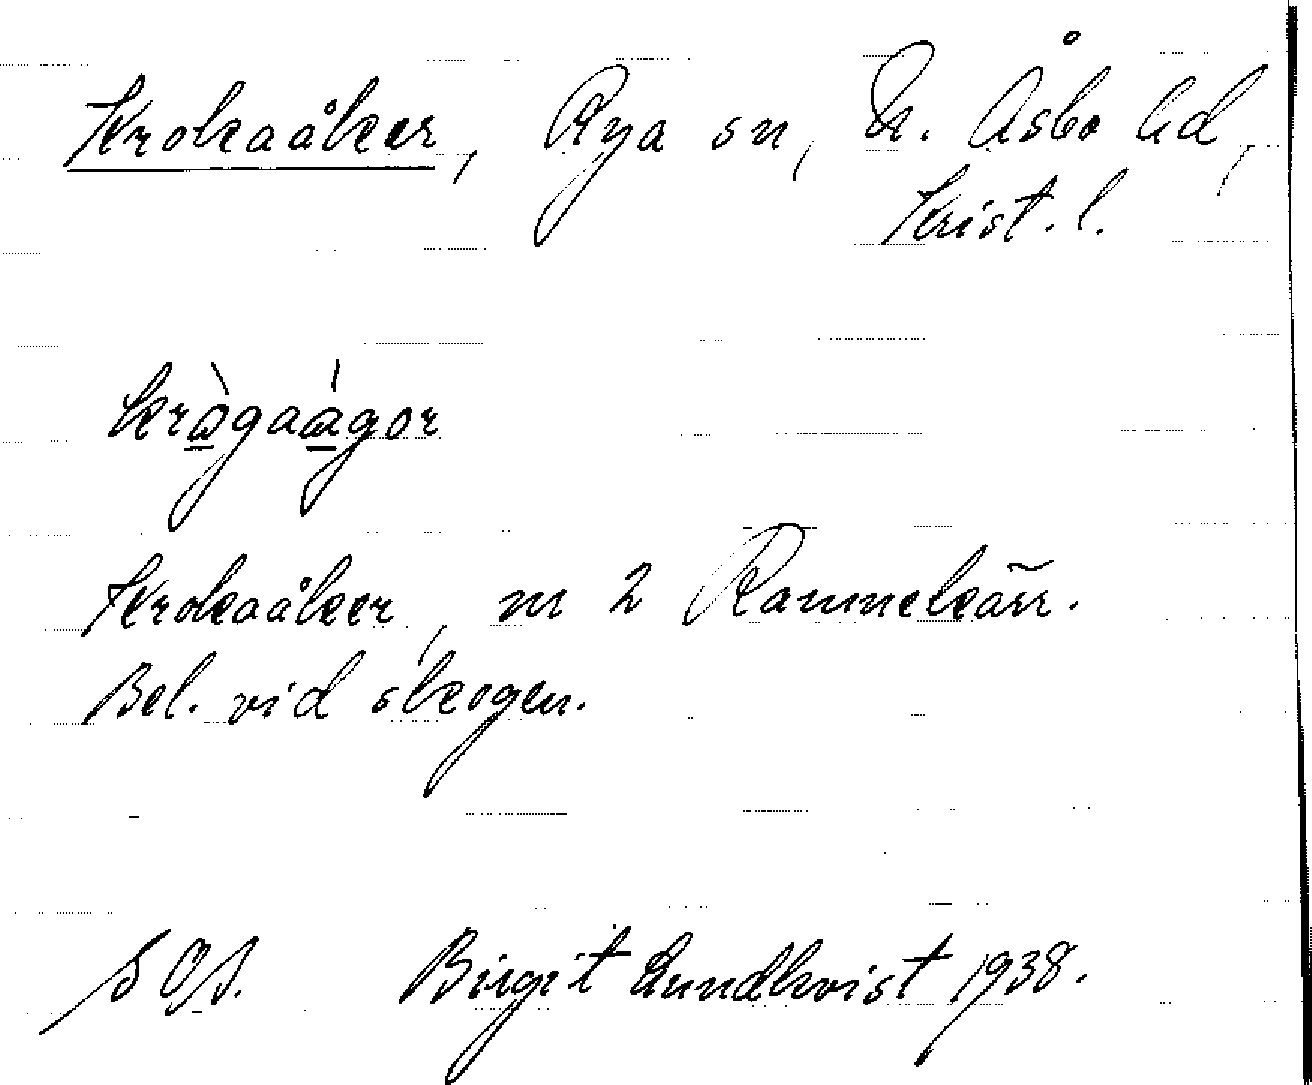 Krokaåker, Rya sn, N. Åsbo hd,
Krist. l.
kràgaágor
Krokaåker, m 2 Rammekärr.
Bel. vid skogen.
SOS. Birgit Lundkvist 1938.